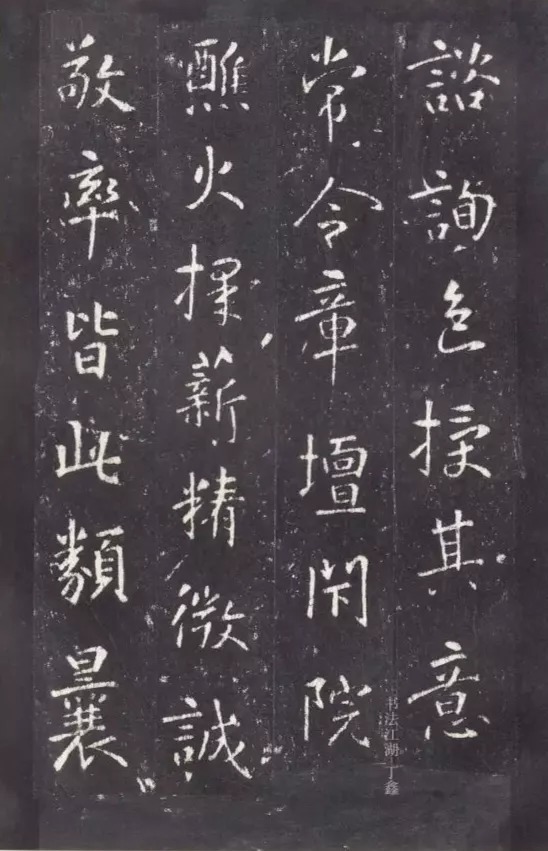 諮詢邑掾其意
常令章壇閑院
醮火擇薪精微誠
敬率皆此類曩
书法江湖 丁鑫